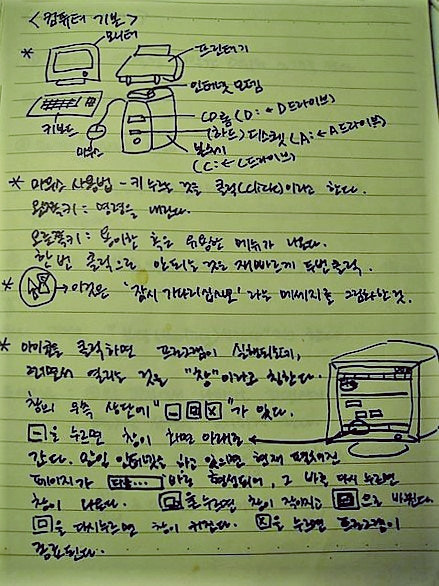 <컴퓨터 기본>
* 모니터
프린터기
인터넷 모뎀
CD롬 (D: ← D드라이브)
(하드) 디스켓 (A: ← A드라이브)
키보드
마우스
본체
(C: ← C드라이브)
* 마우스 사용법 - 키 누르는 것을 클릭(Click)이라고 한다.
왼쪽키 : 명령을 내린다.
오른쪽키 : 용이한 혹은 유용한 메뉴가 나온다.
한번 클릭으로 안되는 것은 재빠르게 두번 클릭.
* → 이것은 '잠시 기다리십시오' 라는 메세지를 그림화한 것.
* 아이콘을 클릭하면 프로그램이 실행되는데,
열리는 것을 "창"이라고 칭한다.
창의 우측 상단에 " _ □ X "가 있다.
_ 을 누르면 창이 화면 아래로
간다. 만일 인터넷을 하고 있으면 현재 펼쳐진
페이지가 바로 형성되어, 그 바를 다시 누르면
창이 나온다. 를 누르면 창이 작아지고 □ 으로 바뀐다.
□ 을 다시 누르면 창이 커진다. X 을 누르면 프로그램이
종료된다.